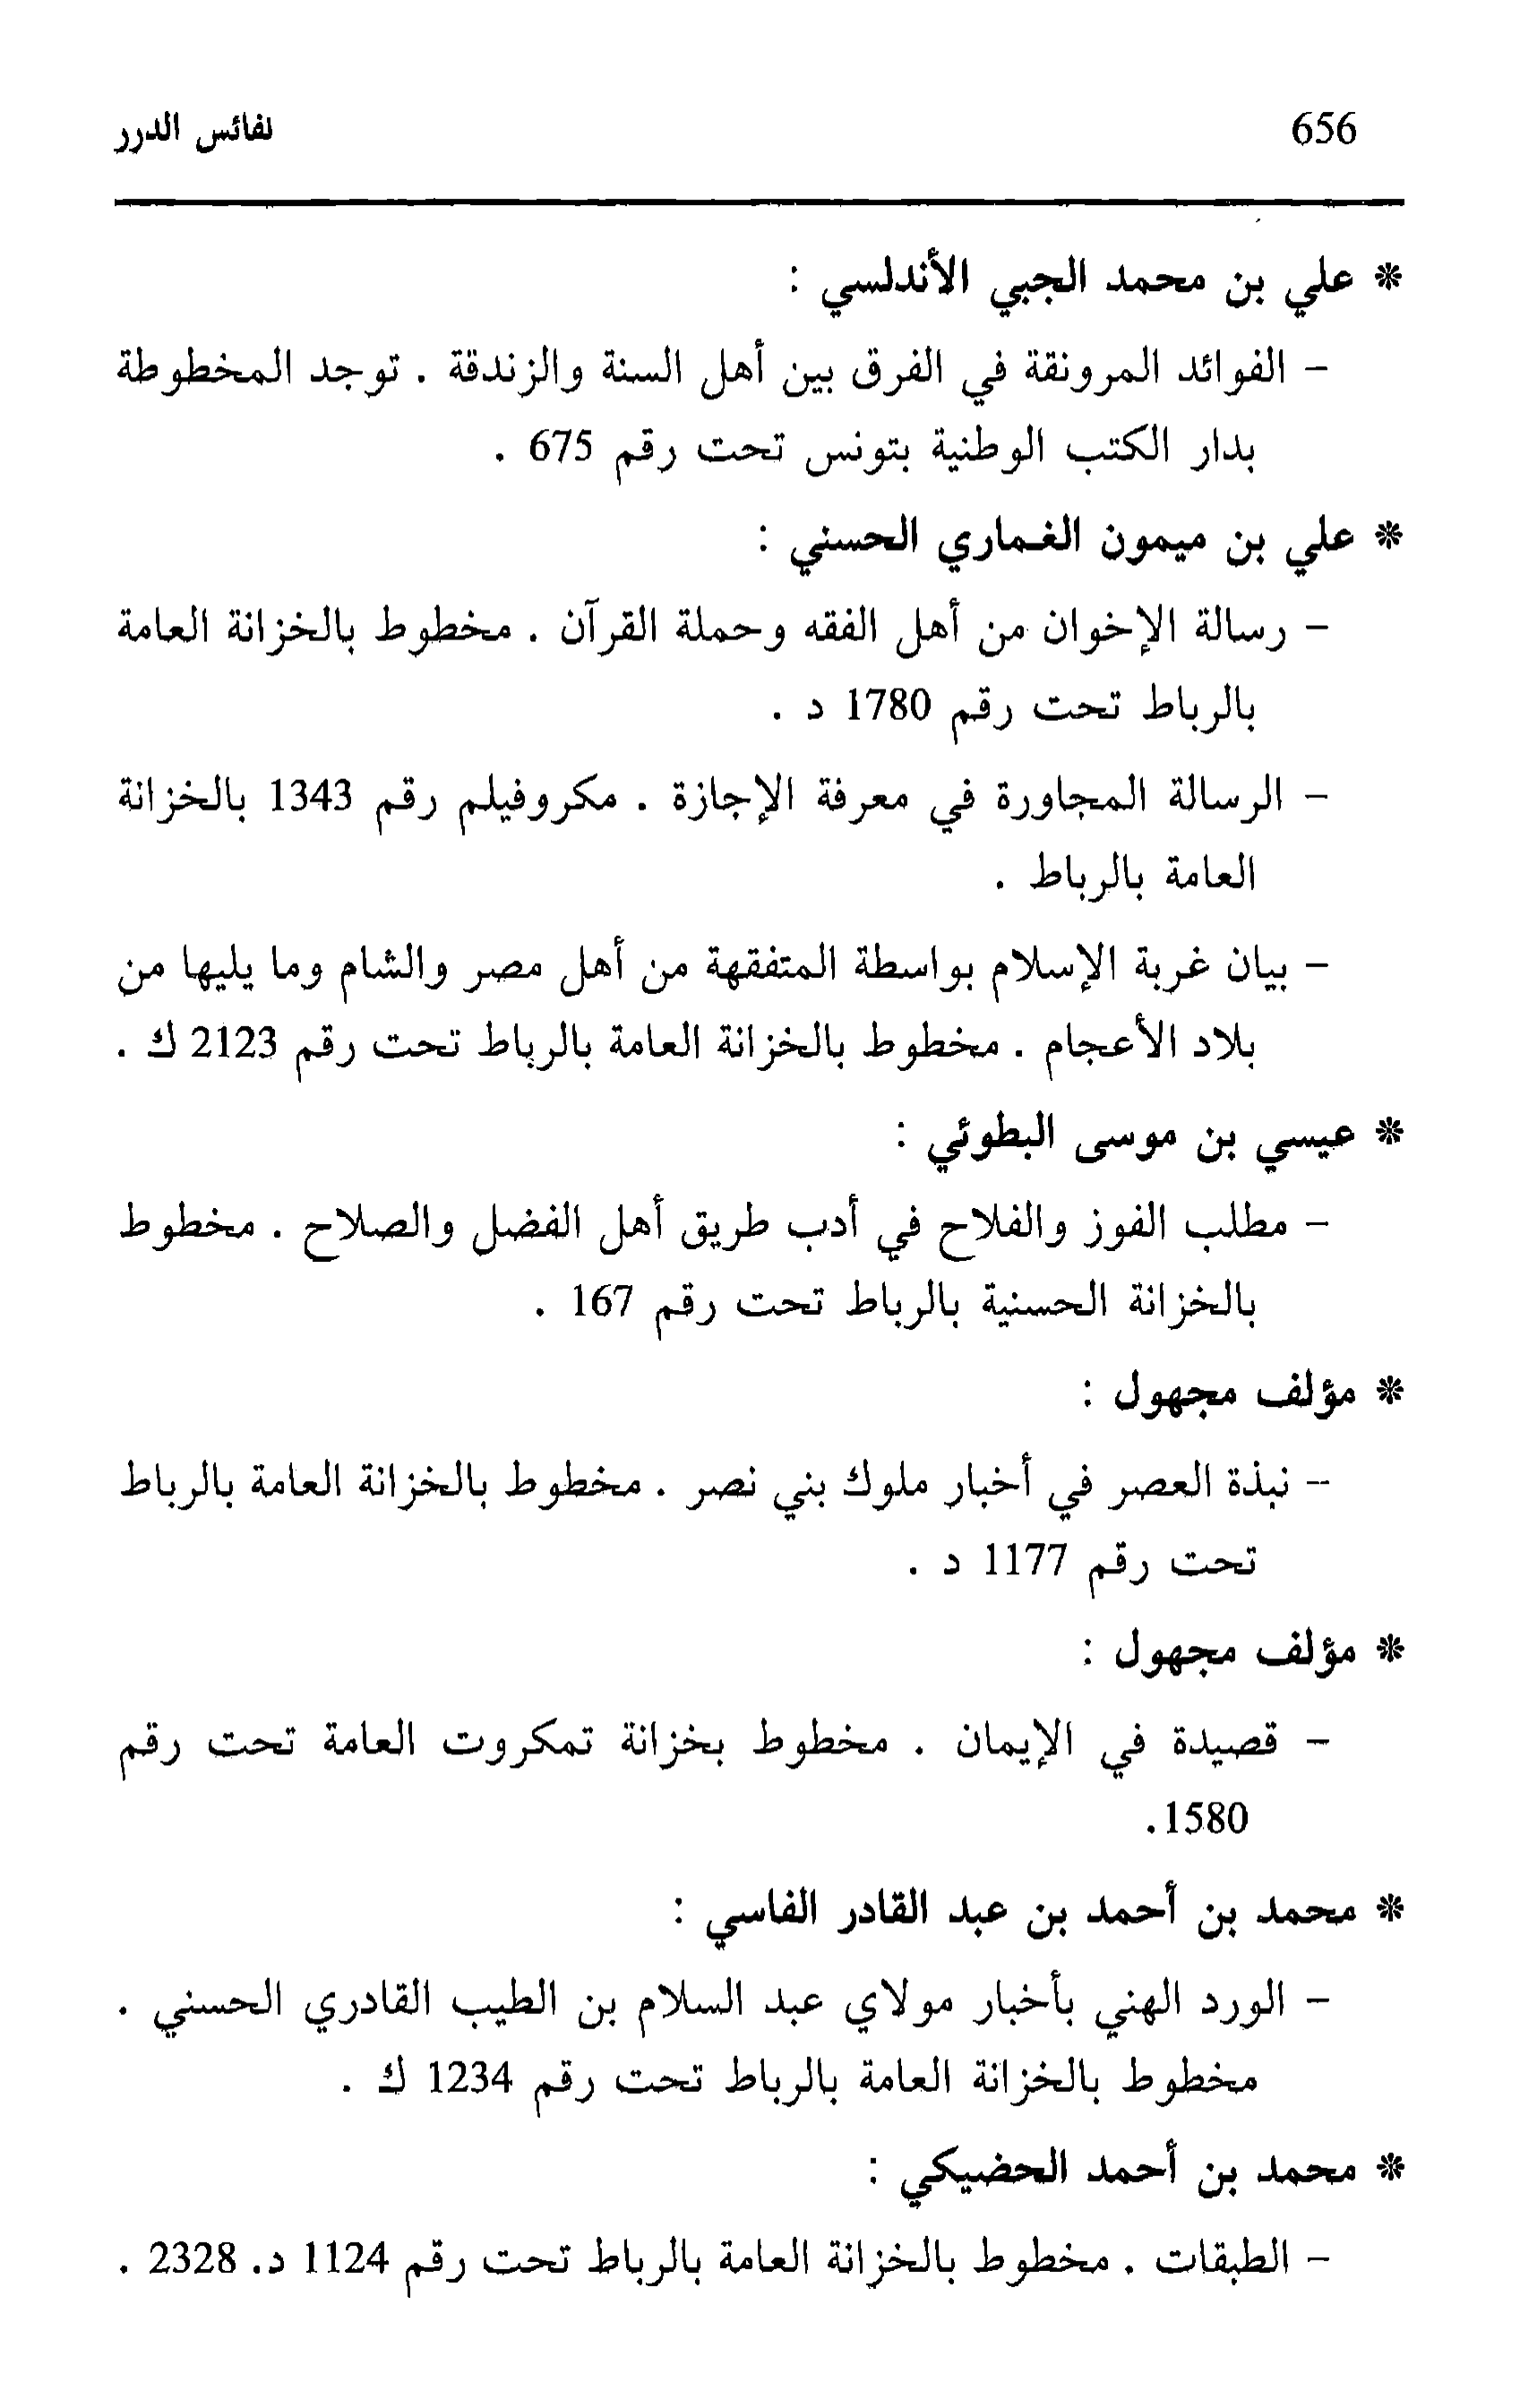 656 نفائس الدرر
* علي بن محمد الجبي الأندلسي :
– الفوائد المرونقة في الفرق بين أهل السنة والزندقة . توجد المخطوطة
بدار الكتب الوطنية بتونس تحت رقم 675 .
* علي بن ميمون الغماري الحسني :
– رسالة الإخوان من أهل الفقه وحملة القرآن . مخطوط بالخزانة العامة
بالرباط تحت رقم 1780 د .
– الرسالة المجاورة في معرفة الإجازة . مكروفيلم رقم 1343 بالخزانة
العامة بالرباط .
– بيان غربة الإسلام بواسطة المتفقهة من أهل مصر والشام وما يليها من
بلاد الأعجام . مخطوط بالخزانة العامة بالرباط تحت رقم 2123 ك .
* عيسي بن موسى البطوئي :
– مطلب الفوز والفلاح في أدب طريق أهل الفضل والصلاح . مخطوط
بالخزانة الحسنية بالرباط تحت رقم 167 .
* مؤلف مجهول :
– نبذة العصر في أخبار ملوك بني نصر . مخطوط بالخزانة العامة بالرباط
تحت رقم 1177 د .
* مؤلف مجهول :
– قصيدة في الإيمان . مخطوط بخزانة تمكروت العامة تحت رقم
1580.
* محمد بن أحمد بن عبد القادر الفاسي :
– الورد الهني بأخبار مولاي عبد السلام بن الطيب القادري الحسني .
مخطوط بالخزانة العامة بالرباط تحت رقم 1234 ك .
* محمد بن أحمد الحضيكي :
– الطبقات . مخطوط بالخزانة العامة بالرباط تحت رقم 1124 د. 2328 .